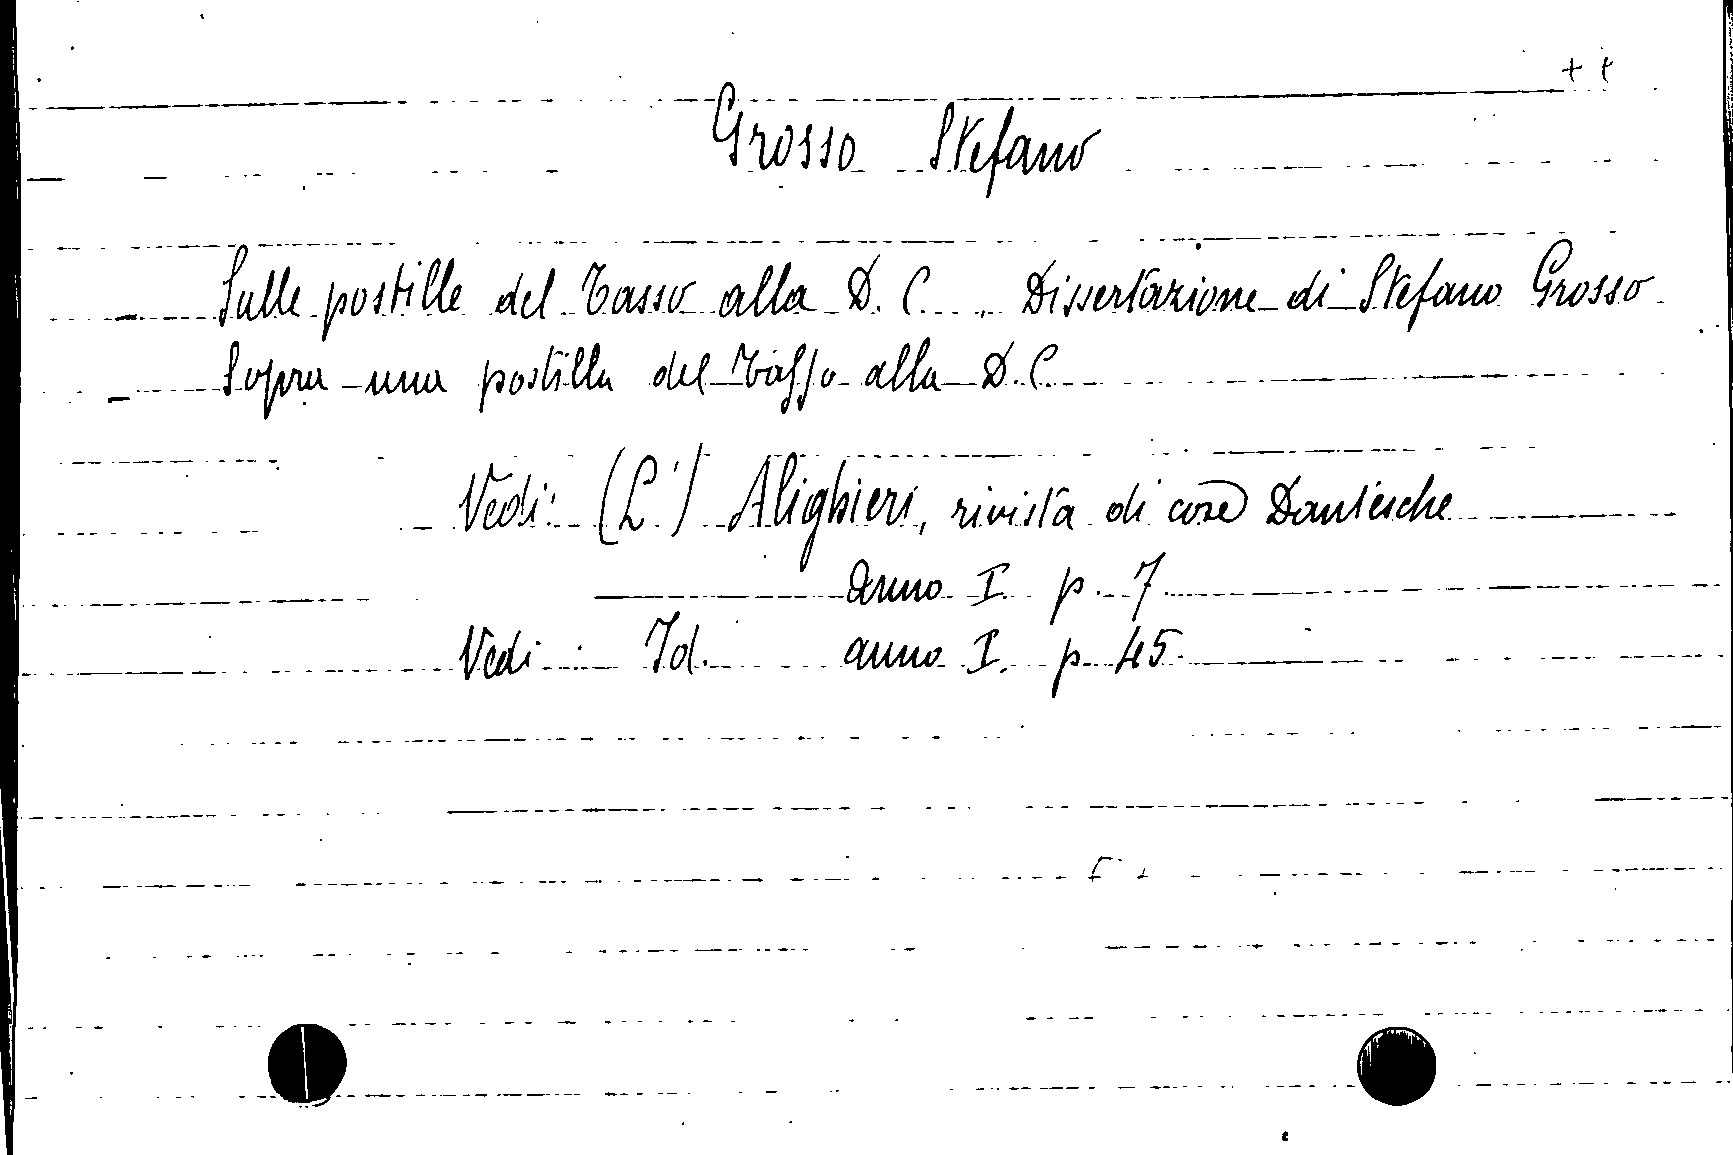 + t
Grosso Stefano
Sulle postille del Tasso alla D. C. Dissertazione di Stefano Grosso
Sopra una postilla del Tasso alla D.C.
Vedi: (L') Alighieri, rivista di cose Dantesche
anno I. p. 7.
Vedi: Id. anno I. p. 45.